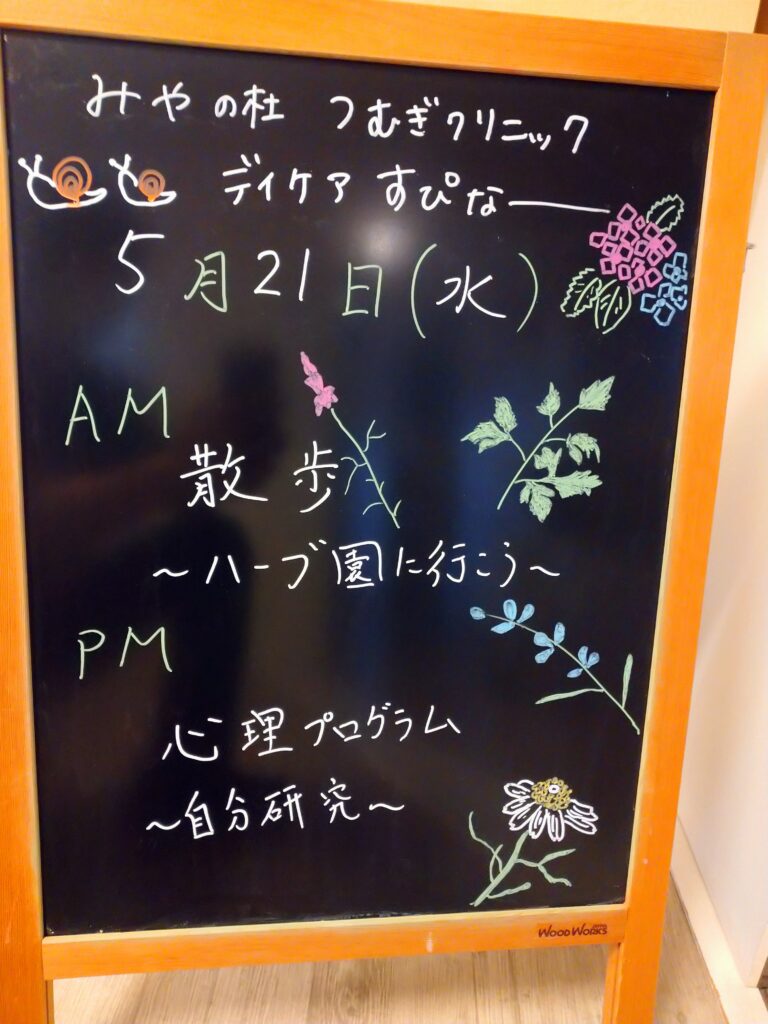 みやの杜 つむぎクリニック
デイケア すぴなー
5月21日(水)
AM
散歩
～ハーブ園に行こう～
PM
心理プログラム
～自分研究～
WOODWORKS